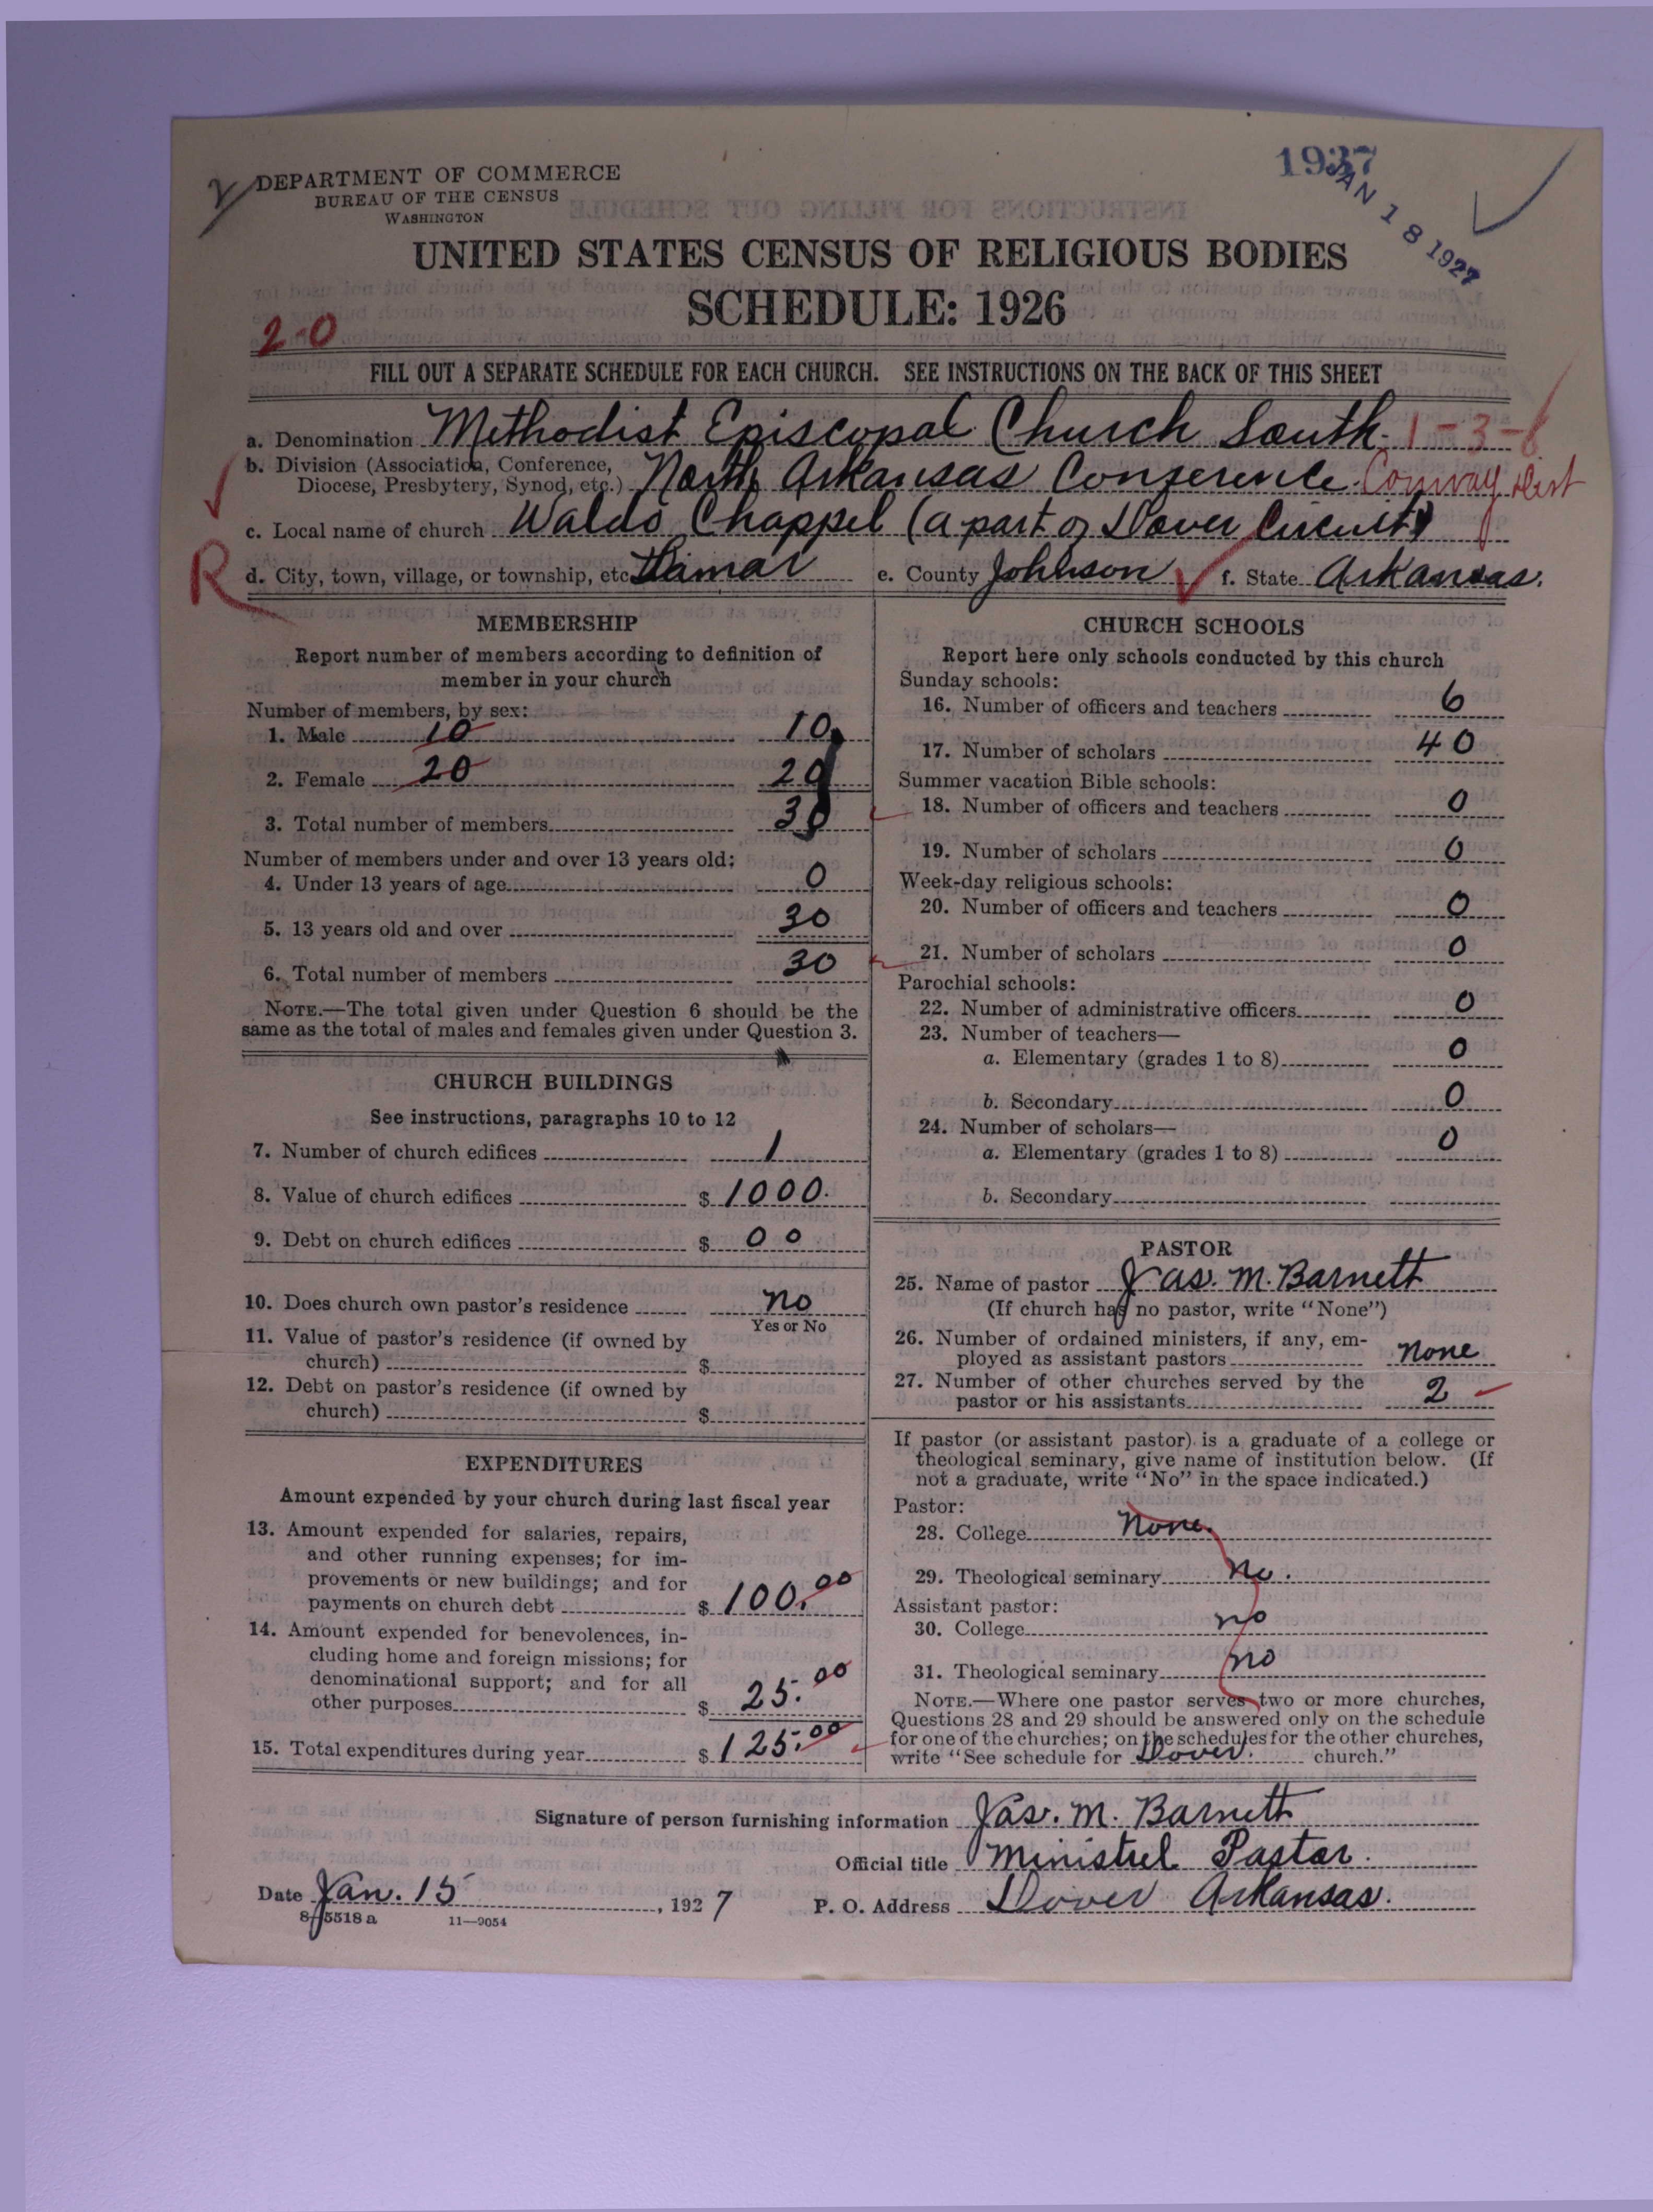 DEPARTMENT OF COMMERCE
BUREAU OF THE CENSUS
WASHINGTON
1937
JAN 18 1927
UNITED STATES CENSUS OF RELIGIOUS BODIES
SCHEDULE: 1926
2-0
FILL OUT A SEPARATE SCHEDULE FOR EACH CHURCH. SEE INSTRUCTIONS ON THE BACK OF THIS SHEET
a. Denomination Methodist Episcopal Church South. 1-3-6
b. Division (Association, Conference, Diocese, Presbytery, Synod, etc.) North Arkansas Conference. Conway Dist
c. Local name of church Waldo Chappel (a part of Dover Circuit)
R
d. City, town, village, or township, etc. Lamar e. County Johnson f. State Arkansas.
MEMBERSHIP
Report number of members according to definition of
member in your church
Number of members, by sex:
1. Male 10 10
2. Female 20 20
3. Total number of members 30
Number of members under and over 13 years old:
4. Under 13 years of age 0
5. 13 years old and over 30
6. Total number of members 30
NOTE.—The total given under Question 6 should be the
same as the total of males and females given under Question 3.
CHURCH BUILDINGS
See instructions, paragraphs 10 to 12
7. Number of church edifices 1
8. Value of church edifices $ 1000.
9. Debt on church edifices $ 00
10. Does church own pastor's residence no
Yes or No
11. Value of pastor's residence (if owned by
church) $
12. Debt on pastor's residence (if owned by
church) $
EXPENDITURES
Amount expended by your church during last fiscal year
13. Amount expended for salaries, repairs,
and other running expenses; for im-
provements or new buildings; and for
payments on church debt $ 100.00
14. Amount expended for benevolences, in-
cluding home and foreign missions; for
denominational support; and for all
other purposes $ 25.00
15. Total expenditures during year $ 125.00
CHURCH SCHOOLS
Report here only schools conducted by this church
Sunday schools:
16. Number of officers and teachers 6
17. Number of scholars 40
Summer vacation Bible schools:
18. Number of officers and teachers 0
19. Number of scholars 0
Week-day religious schools:
20. Number of officers and teachers 0
21. Number of scholars 0
Parochial schools:
22. Number of administrative officers 0
23. Number of teachers—
a. Elementary (grades 1 to 8) 0
b. Secondary 0
24. Number of scholars—
a. Elementary (grades 1 to 8) 0
b. Secondary
PASTOR
25. Name of pastor Jas. M. Barnett
(If church has no pastor, write "None")
26. Number of ordained ministers, if any, em-
ployed as assistant pastors none
27. Number of other churches served by the
pastor or his assistants 2
If pastor (or assistant pastor) is a graduate of a college or
theological seminary, give name of institution below. (If
not a graduate, write "No" in the space indicated.)
Pastor:
28. College None.
29. Theological seminary No.
Assistant pastor:
30. College no
31. Theological seminary no
NOTE.—Where one pastor serves two or more churches,
Questions 28 and 29 should be answered only on the schedule
for one of the churches; on the schedules for the other churches,
write "See schedule for Dover. church."
Signature of person furnishing information Jas. M. Barnett
Official title Ministrel Pastor.
Date Jan. 15, 1927 P. O. Address Dover Arkansas.
8-5518 a 11—9054